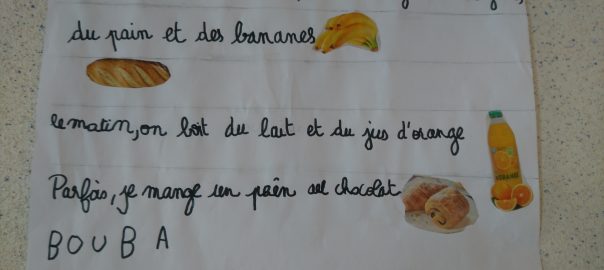 du pain et des bananes
le matin, on boit du lait et du jus d'orange
Parfois, je mange un pain au chocolat
BOUBA